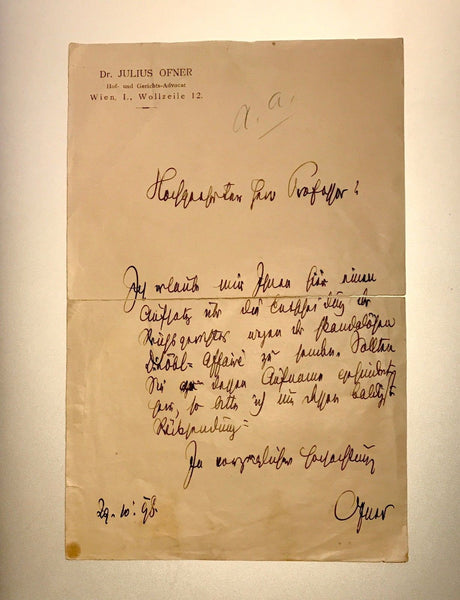 Dr. JULIUS OFNER
Hof- und Gerichts-Advocat
Wien, I., Wollzeile 12.
a. a.
Hochgeehrter Herr Professor!
Ich erlaube mir Ihnen hier einen
Aufsatz über die Entscheidung des
Reichsgerichtes wegen der skandalösen
Affaire zu senden. Sollten
Sie dessen Aufname gehindert
sein, so bitte ich um dessen baldige
Rücksendung.
In vorzüglicher Hochachtung
29. 10. 98.
Ofner